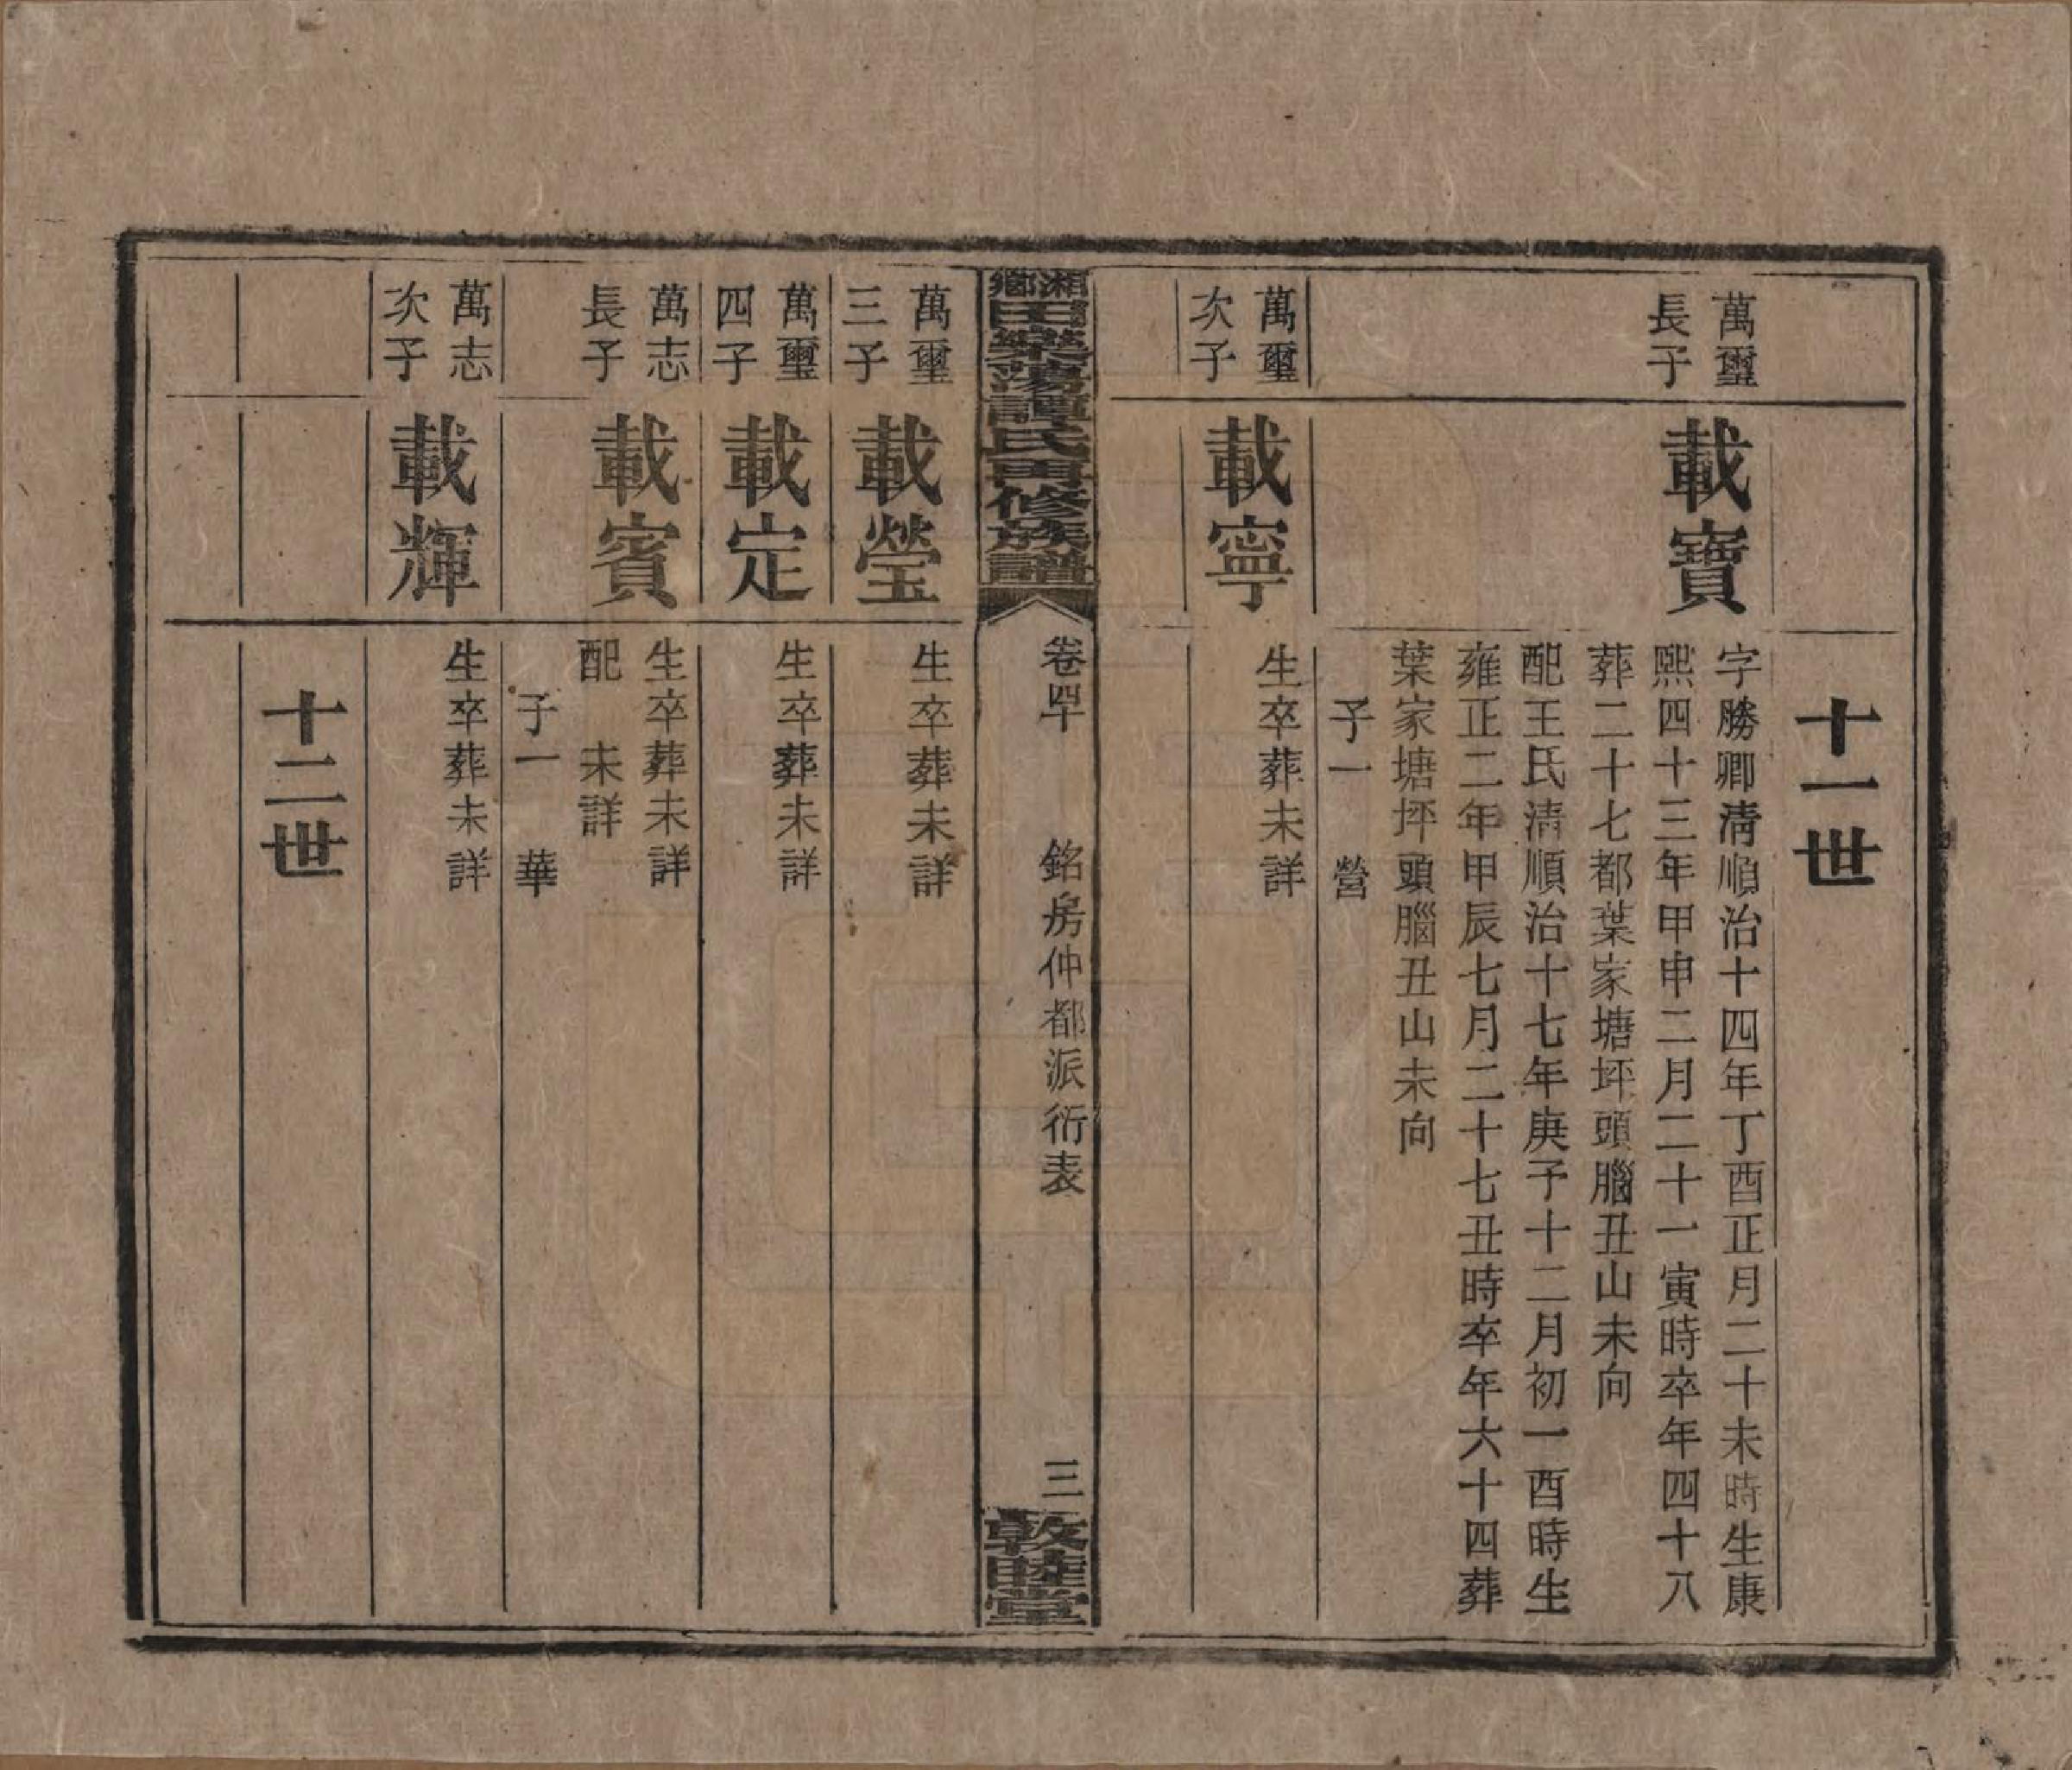 十一世
萬璽
長子
載寶
字勝卿清順治十四年丁酉正月二十未時生康
熙四十三年甲申二月二十一寅時卒年四十八
葬二十七都葉家塘坪頭腦丑山未向
配王氏清順治十七年庚子十二月初一酉時生
雍正二年甲辰七月二十七丑時卒年六十四葬
葉家塘坪頭腦丑山未向
子一　營
萬璽
次子
載寧
生卒葬未詳
湘鄉田樂蕩譚氏再修族譜
卷四十
銘房仲都派衍表
三
敦睦堂
萬璽
三子
載瑩
生卒葬未詳
萬璽
四子
載定
生卒葬未詳
萬志
長子
載賓
生卒葬未詳
配　未詳
子一　華
萬志
次子
載輝
生卒葬未詳
十二世